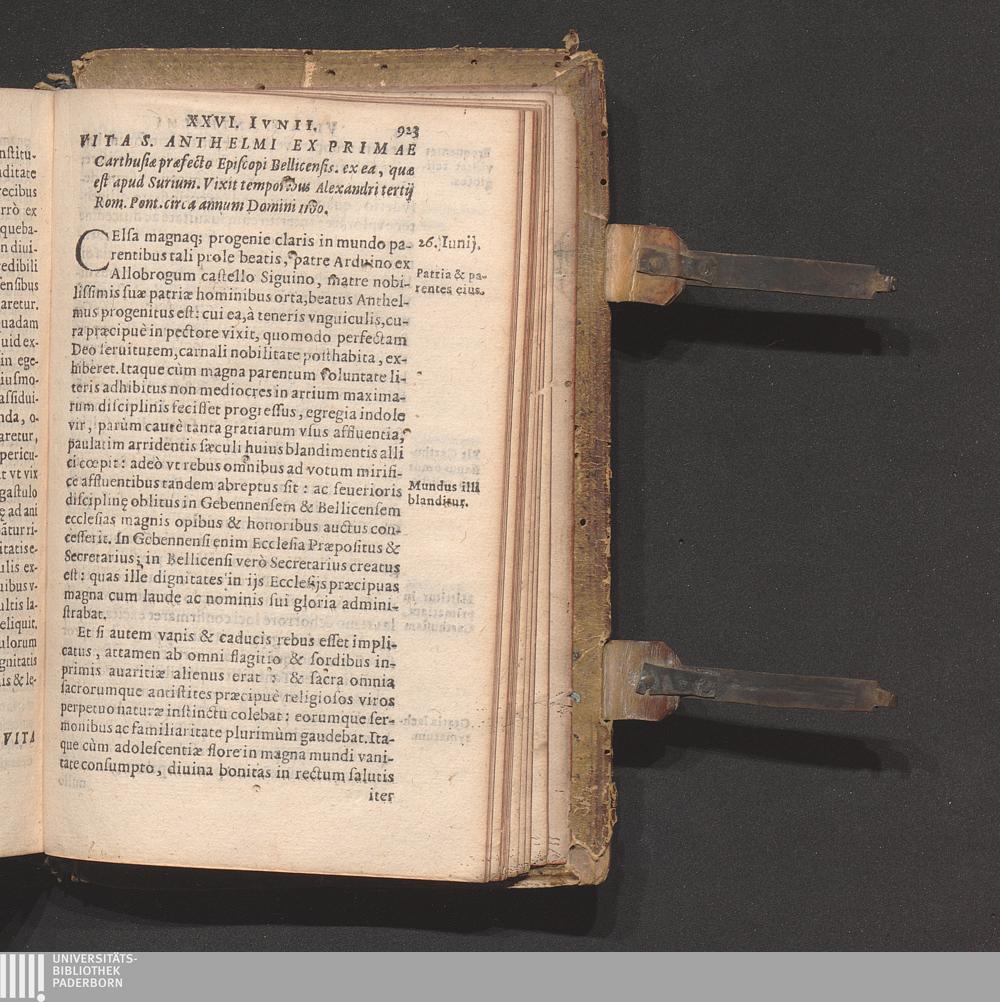 XXVI. IVNII. 923
VITA S. ANTHELMI EX PRIMAE
Carthusiæ præfecto Episcopi Bellicensis. ex ea, quæ
est apud Surium. Vixit temporibus Alexandri tertij
Rom. Pont. circa annum Domini 1180.
CElsa magnaq; progenie claris in mundo pa-
rentibus tali prole beatis, patre Arduino ex
Allobrogum castello Siguino, matre nobi-
lissimis suæ patriæ hominibus orta, beatus Anthel-
mus progenitus est: cui ea, à teneris vnguiculis, cu-
ra præcipuè in pectore vixit, quomodo perfectam
Deo seruitutem, carnali nobilitate posthabita, ex-
hiberet. Itaque cùm magna parentum voluntate li-
teris adhibitus non mediocres in artium maxima-
rum disciplinis fecisset progressus, egregia indole
vir, parùm cautè tanta gratiarum vsus affluentia,
paulatim arridentis sæculi huius blandimentis alli
ci cœpit: adeò vt rebus omnibus ad votum mirifi-
cè affluentibus tandem abreptus sit: ac seuerioris
disciplinę oblitus in Gebennensem & Bellicensem
ecclesias magnis opibus & honoribus auctus con-
cesserit. In Gebennensi enim Ecclesia Præpositus &
Secretarius; in Bellicensi verò Secretarius creatus
est: quas ille dignitates in ijs Ecclesijs præcipuas
magna cum laude ac nominis sui gloria admini-
strabat.
Et si autem vanis & caducis rebus esset impli-
catus, attamen ab omni flagitio & sordibus in-
primis auaritiæ alienus erat: & sacra omnia
sacrorumque antistites præcipuè religiosos viros
perpetuo naturæ instinctu colebat: eorumque ser-
monibus ac familiaritate plurimùm gaudebat. Ita-
que cùm adolescentiæ flore in magna mundi vani-
tate consumpto, diuina bonitas in rectum salutis
iter
26. Iunij.
Patria & pa-
rentes eius.
Mundus illi
blanditur.
nstitu-
uditate
recibus
rrò ex
queba-
n diui-
redibili
ensibus
aretur.
uadam
uid ex-
in ege-
iusmo-
assidui-
nda, o-
aretur,
pericu-
t vt vix
gastulo
ę ad ani
itatis e-
ulis ex-
uibus v-
ultis la-
eliquit,
ulorum
gnitatis
is & le-
VITA
UNIVERSITÄTS-
BIBLIOTHEK
PADERBORN